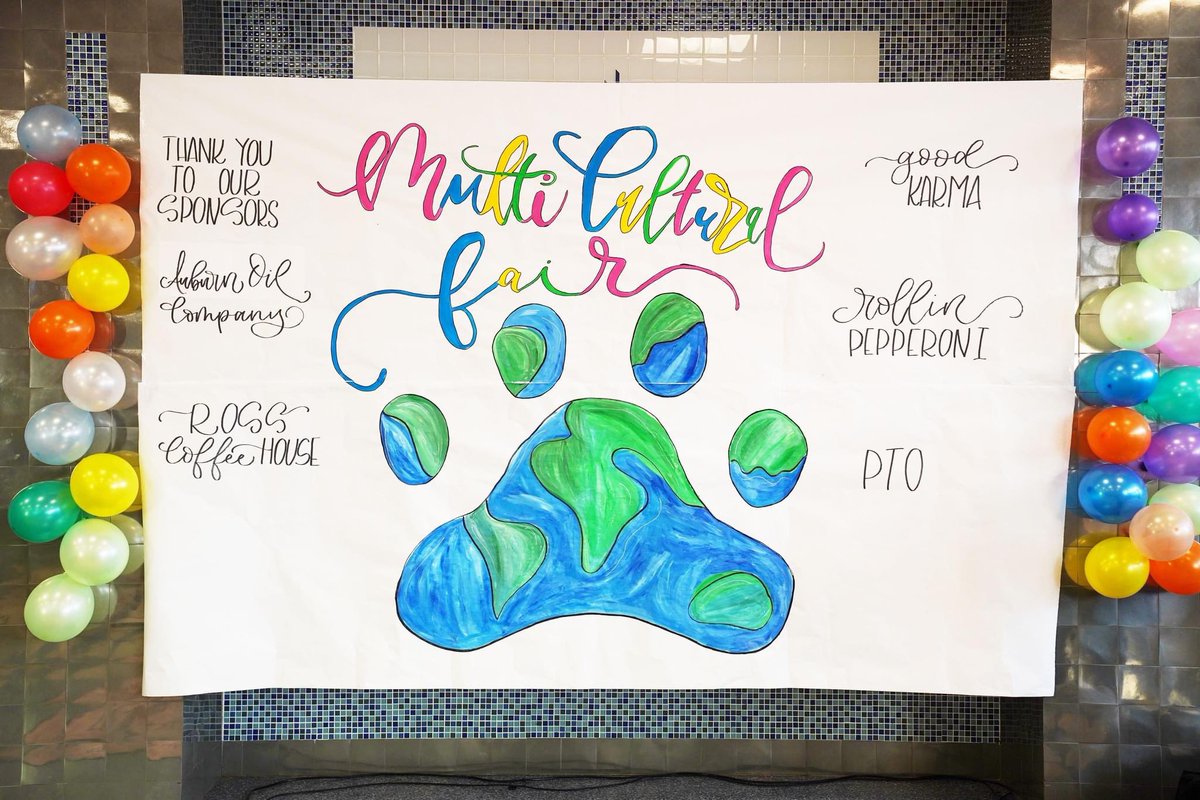 Multi Cultural
fair
THANK YOU
TO OUR
SPONSORS
Auburn Oil
Company
ROSS
Coffee HOUSE
good
KARMA
rollin
PEPPERONI
PTO